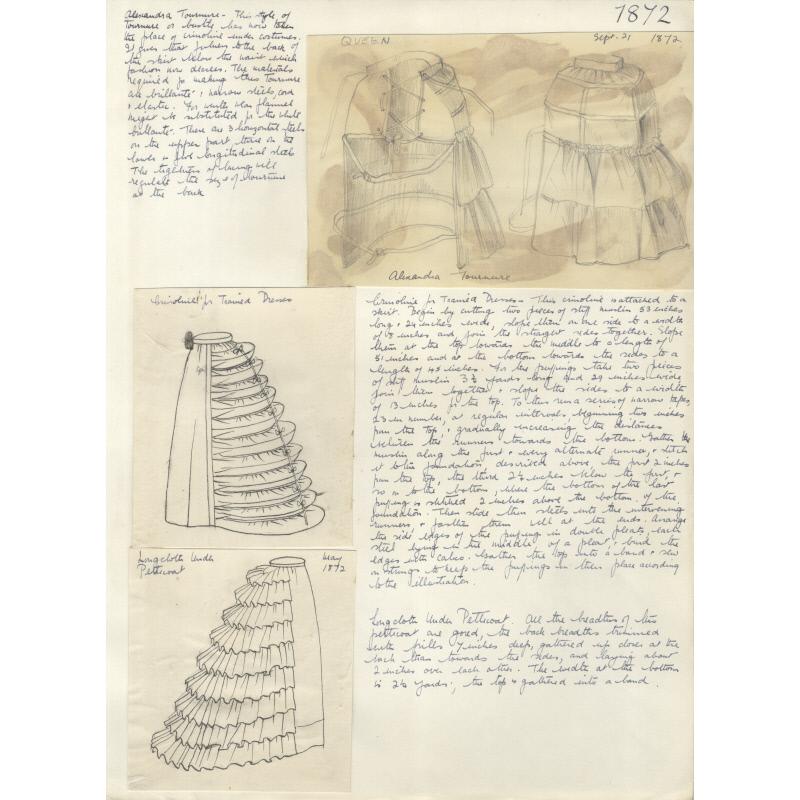 1872
Alexandra Tournure - This style of
Tournure or bustle has now taken
the place of crinoline under costumes.
It gives that fulness to the back of
the skirt below the waist which
fashion now decrees. The materials
required for making this Tournure
are brillanté, narrow steels, cord
& elastic. For winter wear flannel
might be substituted for the white
brillanté. There are 3 horizontal steels
on the upper part, three on the
lower & five longitudinal steels
The tightness of lacing will
regulate the size of tournure
at the back
QUEEN
Sept. 21 1872
Alexandra Tournure
Crinoline for Trained Dresses
Crinoline for Trained Dresses - This crinoline is attached to a
skirt. Begin by cutting two pieces of stiff muslin 53 inches
long & 24 inches wide, slope them on one side to a width
of inches and join the straight sides together. Slope
them at the top towards the middle to a length of
51 inches and at the bottom towards the sides to a
length of 45 inches. For the puffings take two pieces
of stiff muslin 3½ yards long and 29 inches wide,
join them together & slope the sides to a width
of 13 inches for the top. To this run a series of narrow tapes,
23 in number, at regular intervals beginning two inches
from the top, & gradually increasing the distances
between the runners towards the bottom. Gather the
muslin along the first & every alternate runner, & stitch
it to the foundation, described above the first 2 inches
from the top, the third 2½ inches below the first, &
so on to the bottom, where the bottom of the last
puffing is stitched 2 inches above the bottom of the
foundation. Then slide then steels into the intervening
runners & fasten them well at the ends. Arrange
the side edges of the puffing in double pleats, each
steel lying in the middle of a pleat, & bind the
edges with calico. Gather the top into a band & sew
on strings to keep the puffings in their place according
to the illustration.
Longcloth Under
Petticoat
May
1872
Longcloth Under Petticoat. All the breadths of this
petticoat are gored, the back breadths trimmed
with frills 7 inches deep, gathered up closer at the
back than towards the sides, and laying about
2 inches over each other. The width at the bottom
is 2½ yards; the top is gathered into a band.